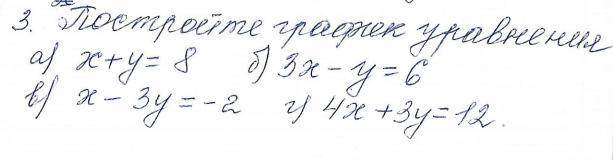 3. Постройте график уравнения
а) x+y=8 б) 3x-y=6
в) x-3y=-2 г) 4x+3y=12.